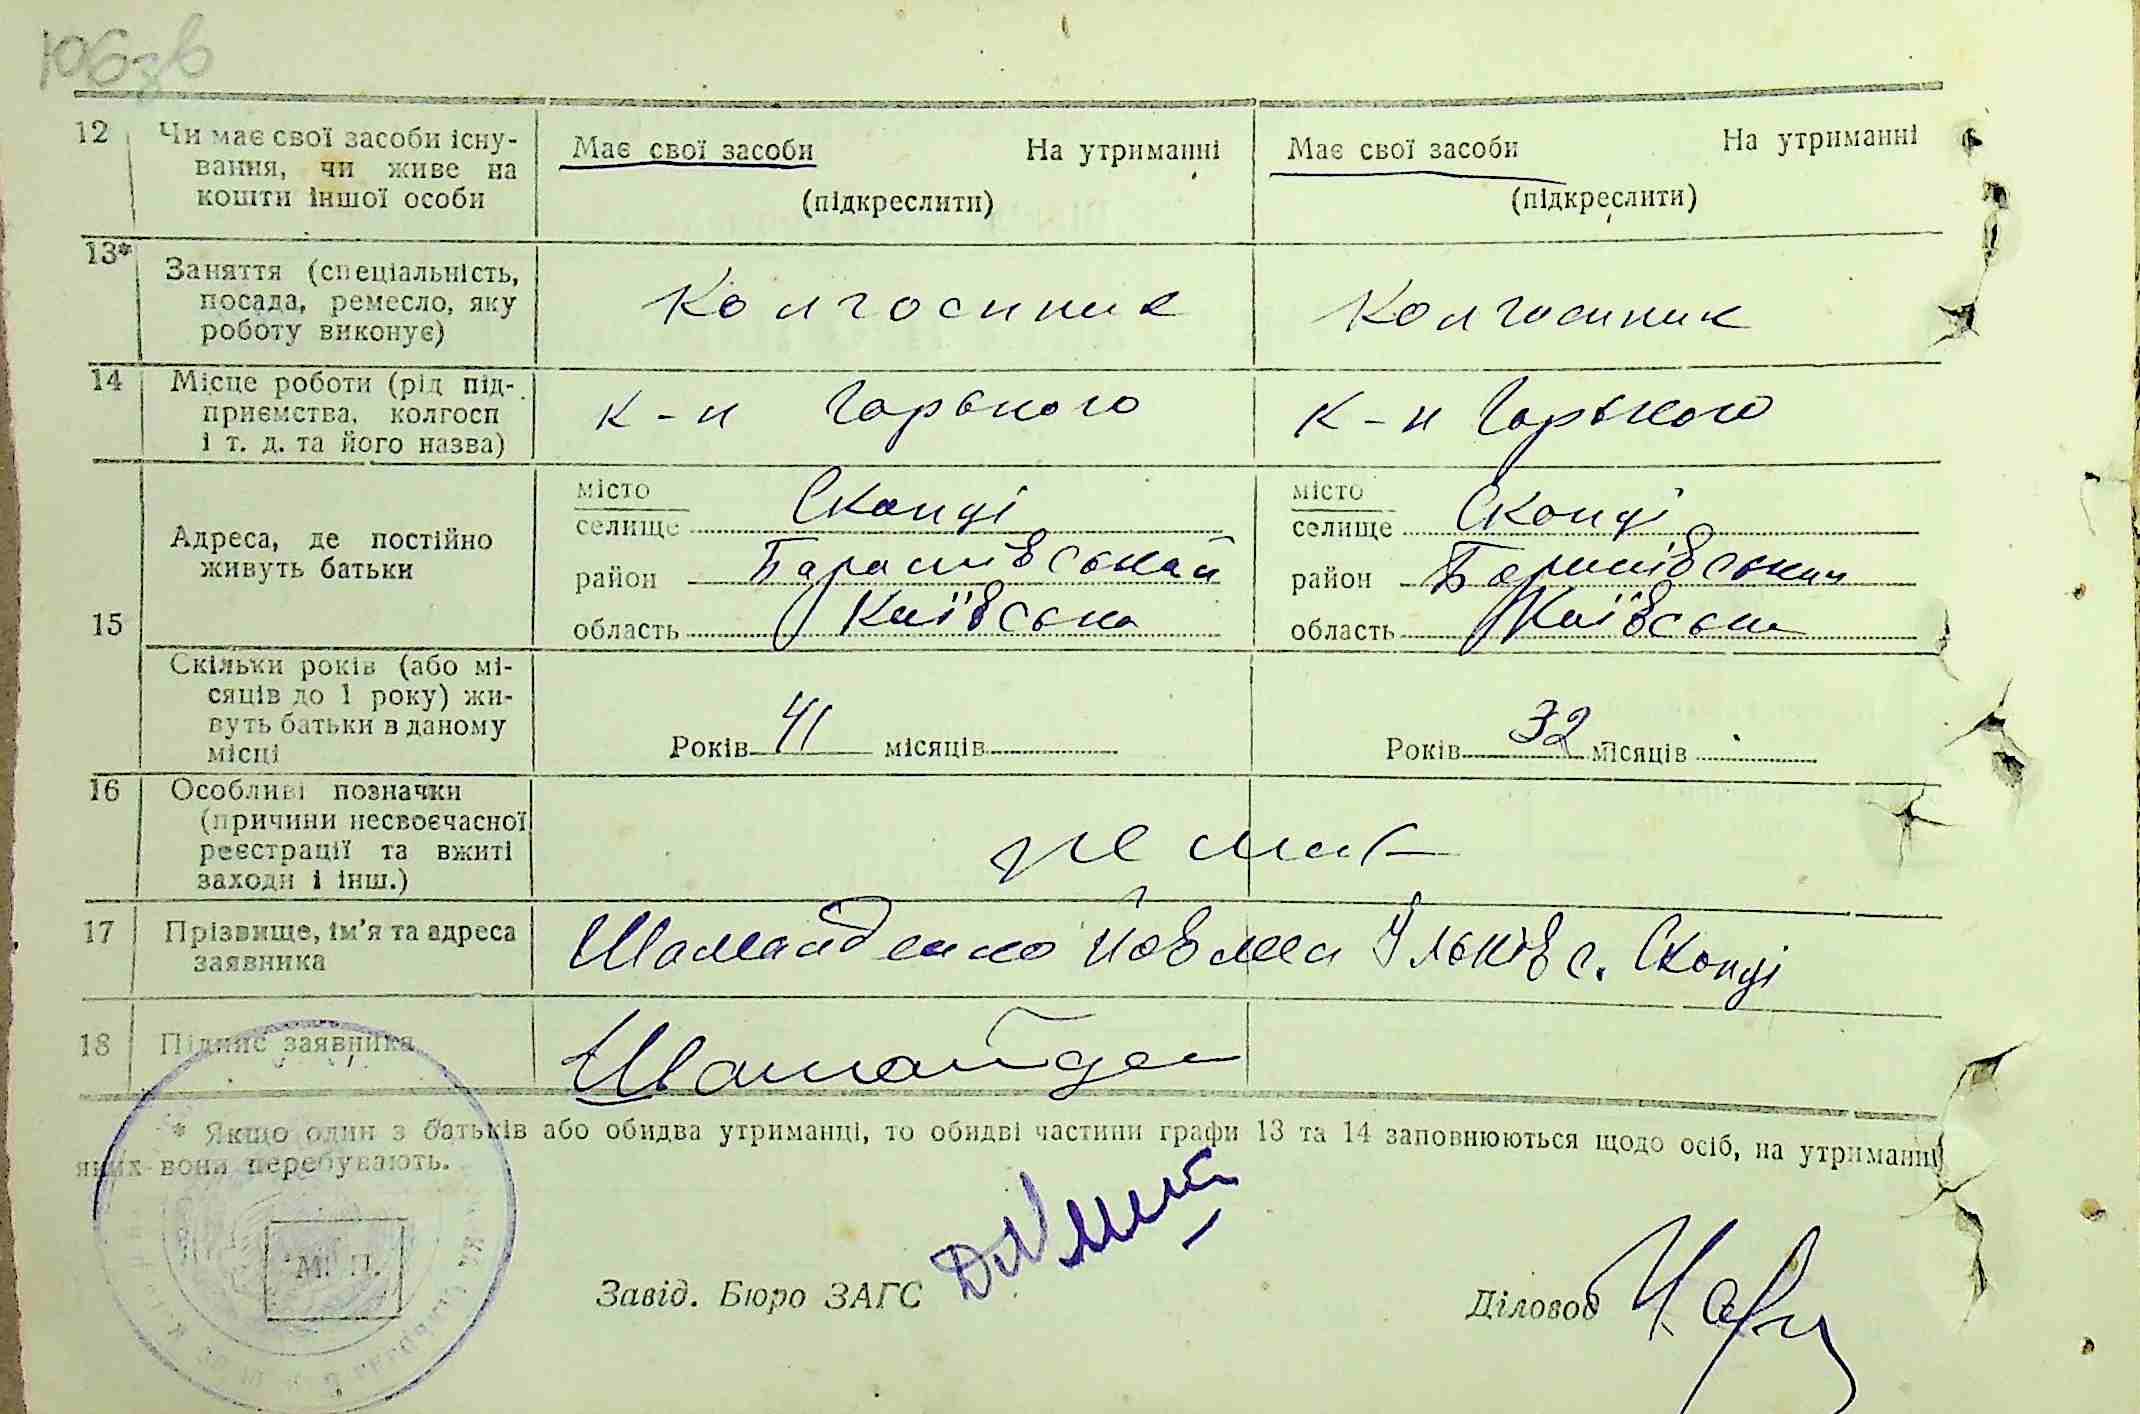 106зв
12 Чи має свої засоби існу-
вання, чи живе на
кошти іншої особи
Має свої засоби На утриманні
(підкреслити)
Має свої засоби На утриманні
(підкреслити)
13* Заняття (спеціальність,
посада, ремесло, яку
роботу виконує)
Колгоспник
Колгоспник
14 Місце роботи (рід під-
приємства, колгосп
і т. д. та його назва)
к-п Горького
к-п Горького
15 Адреса, де постійно
живуть батьки
місто
селище Скопці
район Баришівський
область Київська
місто
селище Скопці
район Баришівський
область Київська
Скільки років (або мі-
сяців до 1 року) жи-
вуть батьки в даному
місці
Років 41 місяців
Років 32 місяців
16 Особливі позначки
(причини несвоєчасної
реєстрації та вжиті
заходи і інш.)
немає
17 Прізвище, ім’я та адреса
заявника
Шамайденко с. Скопці
18 Підпис заявника
Шамайден
* Якщо один з батьків або обидва утриманці, то обидві частини графи 13 та 14 заповнюються щодо осіб, на утриманні
яких вони перебувають.
М. П.
Завід. Бюро ЗАГС
Діловод